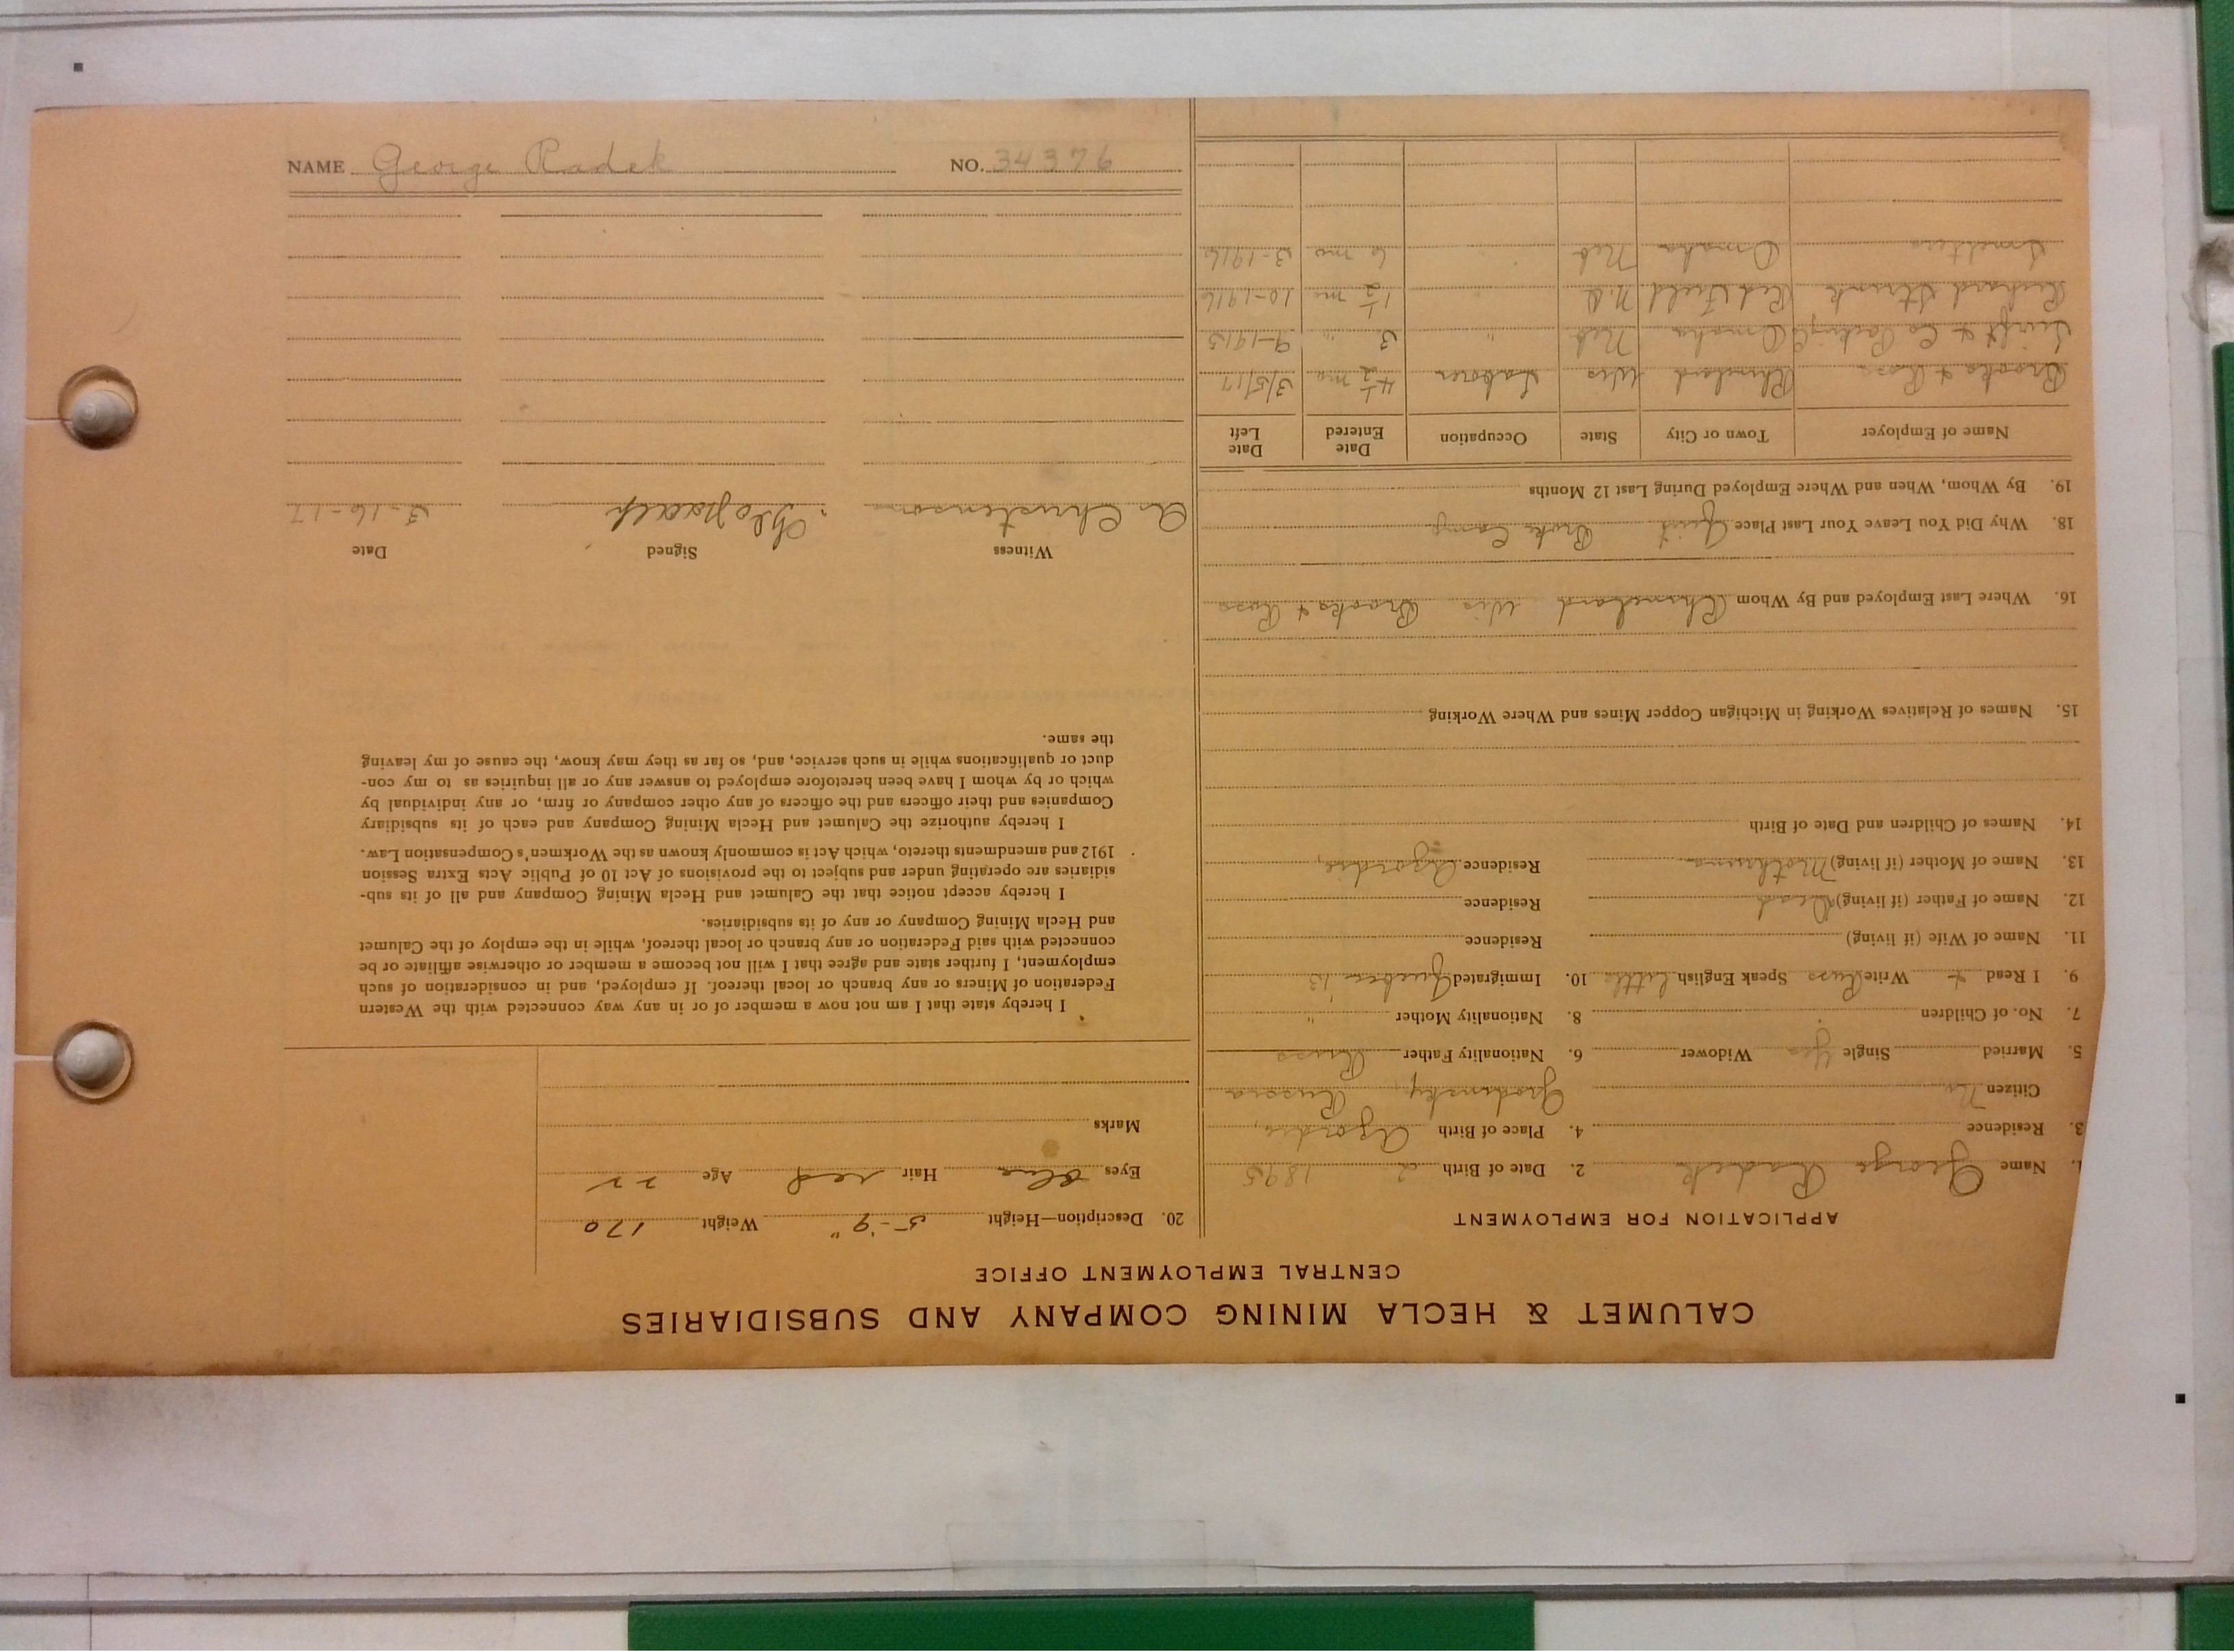 NAME George Radek NO. 34376
CALUMET & HECLA MINING COMPANY AND SUBSIDIARIES
CENTRAL EMPLOYMENT OFFICE
APPLICATION FOR EMPLOYMENT
1. Name George Radek 2. Date of Birth 2 1895
3. Residence 4. Place of Birth Azordie,
Citizen No Grodinsky, Russia
5. Married Single Yes Widower 6. Nationality Father Russ
7. No. of Children 8. Nationality Mother "
9. I Read + Write Russ Speak English Little 10. Immigrated Quebec 13
11. Name of Wife (if living) Residence
12. Name of Father (if living) Dead Residence
13. Name of Mother (if living) Residence Azordie,
14. Names of Children and Date of Birth
15. Names of Relatives Working in Michigan Copper Mines and Where Working
16. Where Last Employed and By Whom Rhineland Wis Brooks & Ross
18. Why Did You Leave Your Last Place Quit Broke Camp
19. By Whom, When and Where Employed During Last 12 Months
Name of Employer Town or City State Occupation Date Entered Date Left
Brooks & Ross Rhineland Wis Laborer 4 1/2 mo 3/5/17
Swift & Co Packing Omaha Neb " 3 " 9-1915
Richard Redfield 1 1/2 mo 10-1916
Smelters Omaha Neb " 6 mo 3-1916
20. Description—Height 5'-9" Weight 170
Eyes Blue Hair red Age 22
Marks
I hereby state that I am not now a member of or in any way connected with the Western
Federation of Miners or any branch or local thereof. If employed, and in consideration of such
employment, I further state and agree that I will not become a member or otherwise affiliate or be
connected with said Federation or any branch or local thereof, while in the employ of the Calumet
and Hecla Mining Company or any of its subsidiaries.
I hereby accept notice that the Calumet and Hecla Mining Company and all of its sub-
sidiaries are operating under and subject to the provisions of Act 10 of Public Acts Extra Session
1912 and amendments thereto, which Act is commonly known as the Workmen's Compensation Law.
I hereby authorize the Calumet and Hecla Mining Company and each of its subsidiary
Companies and their officers and the officers of any other company or firm, or any individual by
which or by whom I have been heretofore employed to answer any or all inquiries as to my con-
duct or qualifications while in such service, and, so far as they may know, the cause of my leaving
the same.
Witness Signed Date
A Christenson 3-16-17